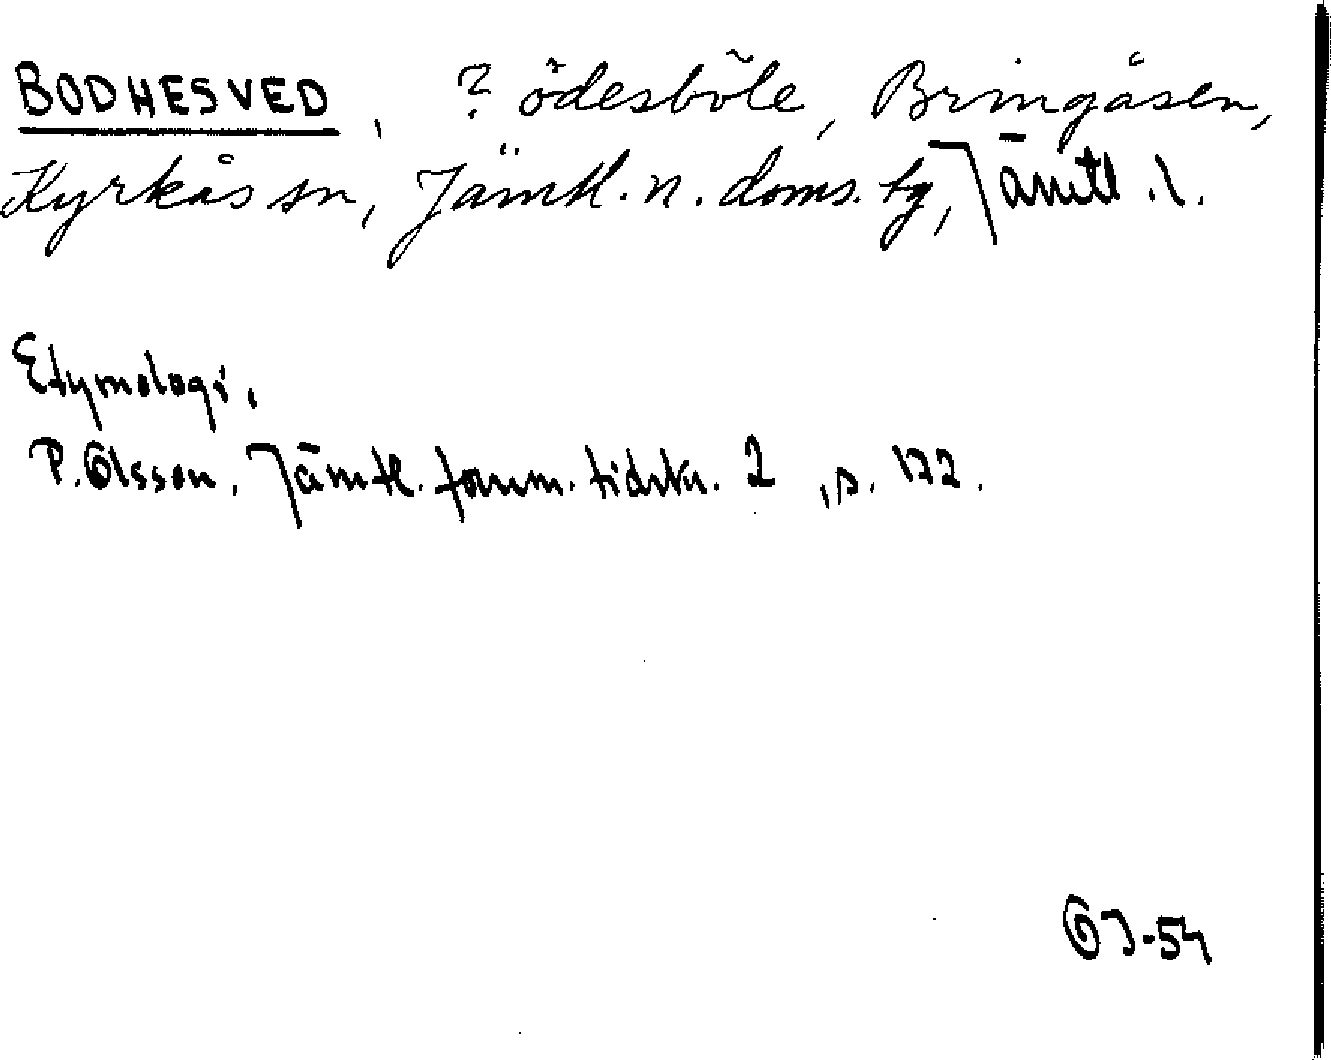 BODHESVED, ? ödesböle, Bringåsen,
Kyrkås sn, Jämtl. n. doms. tg, Jämtl. l.
Etymologi.
P. Olsson, Jämtl. fornm. tidskr. 2, s. 172.
OJ-54